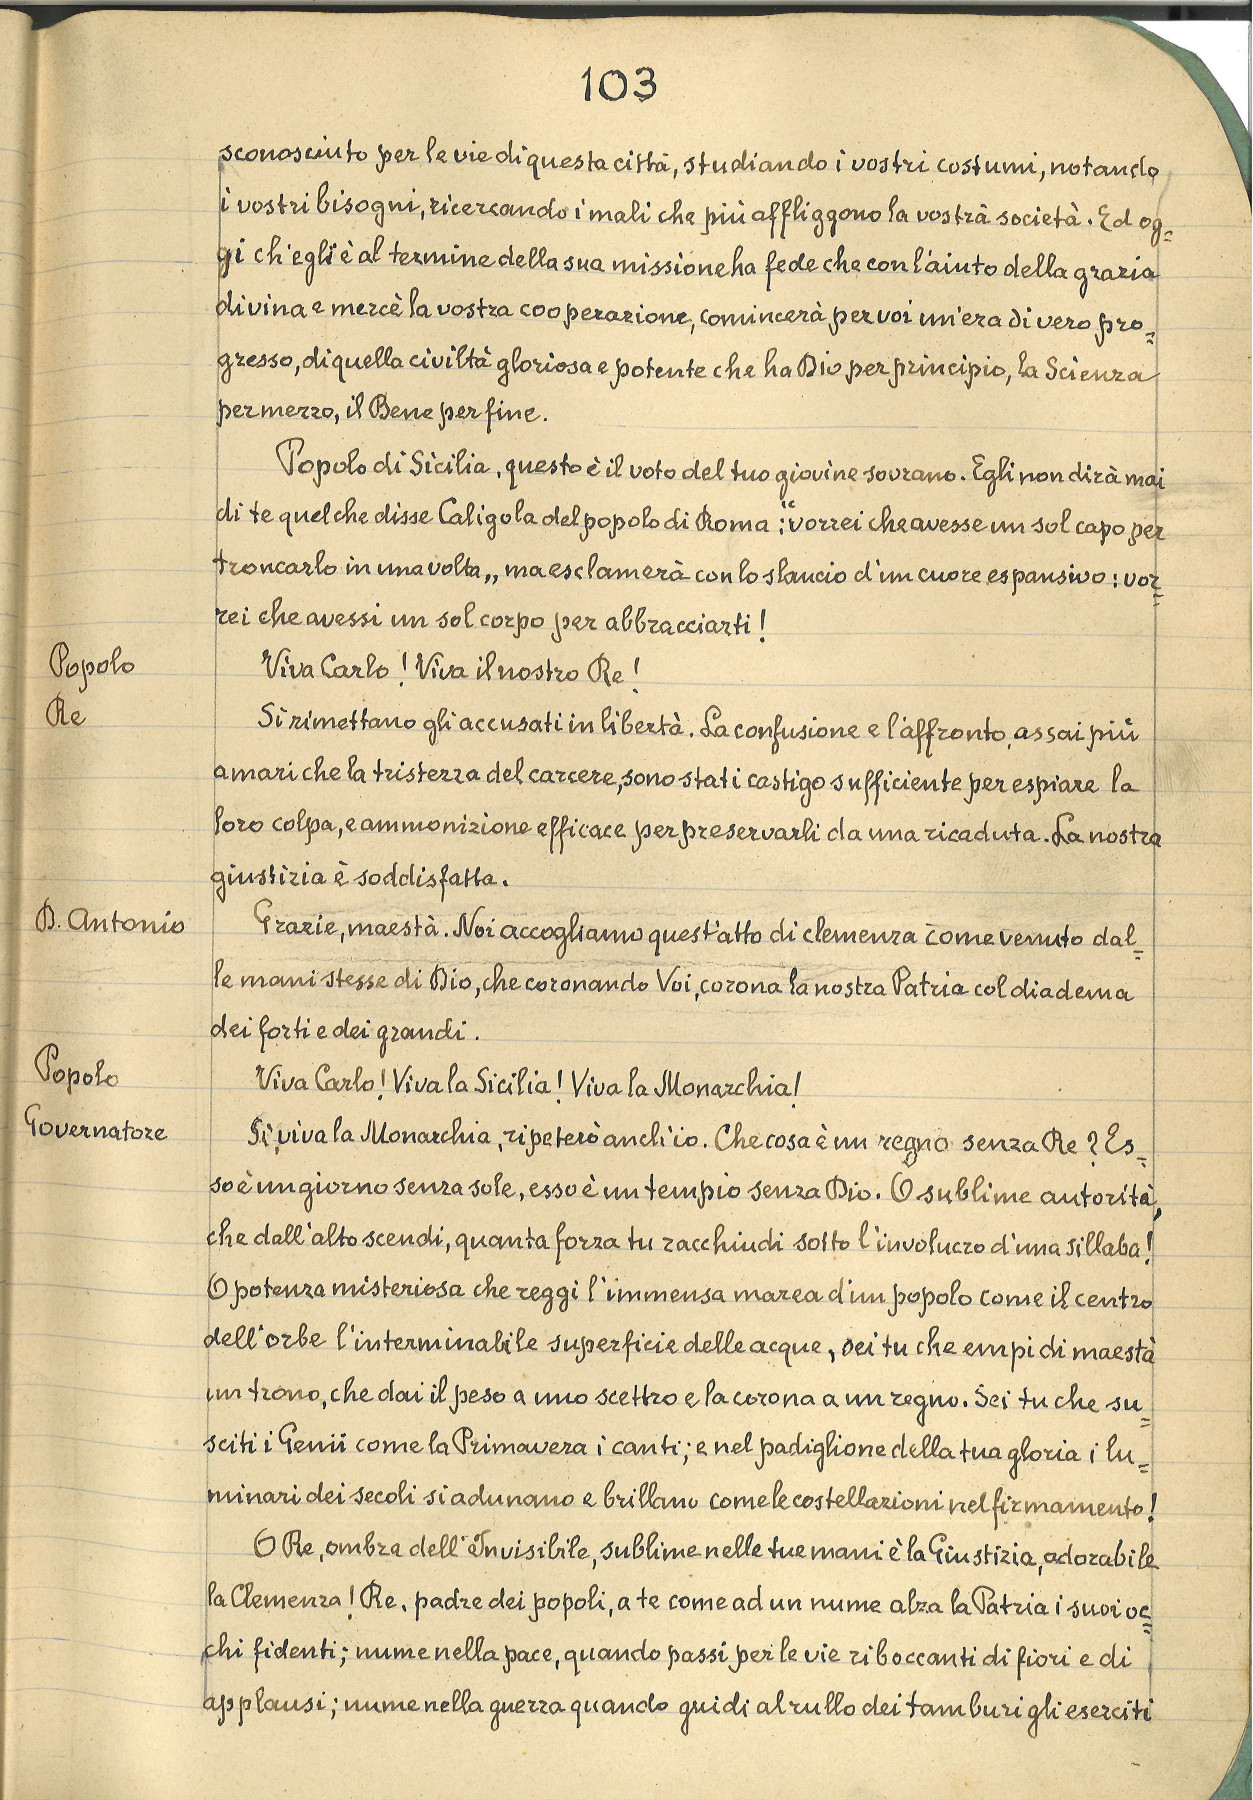 103
sconosciuto per le vie di questa città, studiando i vostri costumi, notando
i vostri bisogni, ricercando i mali che più affliggono la vostra società. Ed og=
gi ch'egli è al termine della sua missione ha fede che con l'aiuto della grazia
divina e mercè la vostra cooperazione, comincerà per voi un'era di vero pro=
gresso, di quella civiltà gloriosa e potente che ha Dio per principio, la Scienza
per mezzo, il Bene per fine.
Popolo di Sicilia, questo è il voto del tuo giovine sovrano. Egli non dirà mai
di te quel che disse Caligola del popolo di Roma: "vorrei che avesse un sol capo per
troncarlo in una volta„ ma esclamerà con lo slancio d'un cuore espansivo: vor=
rei che avessi un sol corpo per abbracciarti!
Popolo Viva Carlo! Viva il nostro Re!
Re Si rimettano gli accusati in libertà. La confusione e l'affronto, assai più
amari che la tristezza del carcere, sono stati castigo sufficiente per espiare la
loro colpa, e ammonizione efficace per preservarli da una ricaduta. La nostra
giustizia è soddisfatta.
D. Antonio Grazie, maestà. Noi accogliamo quest'atto di clemenza come venuto dal=
le mani stesse di Dio, che coronando Voi, corona la nostra Patria col diadema
dei forti e dei grandi.
Popolo Viva Carlo! Viva la Sicilia! Viva la Monarchia!
Governatore Sì, viva la Monarchia, ripeterò anch'io. Che cosa è un regno senza Re? Es=
so è un giorno senza sole, esso è un tempio senza Dio. O sublime autorità,
che dall'alto scendi, quanta forza tu racchiudi sotto l'involucro d'una sillaba!
O potenza misteriosa che reggi l'immensa marea d'un popolo come il centro
dell'orbe l'interminabile superficie delle acque, sei tu che empi di maestà
un trono, che dai il peso a uno scettro e la corona a un regno. Sei tu che su=
sciti i Genii come la Primavera i canti; e nel padiglione della tua gloria i lu=
minari dei secoli si adunano e brillano come le costellazioni nel firmamento!
O Re, ombra dell'Invisibile, sublime nelle tue mani è la Giustizia, adorabile
la Clemenza! Re, padre dei popoli, a te come ad un nume alza la Patria i suoi oc=
chi fidenti; nume nella pace, quando passi per le vie riboccanti di fiori e di
applausi; nume nella guerra quando guidi al rullo dei tamburi gli eserciti